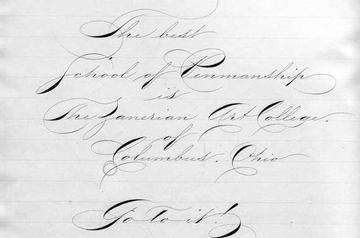 The best
School of Penmanship
is
The Zanerian Art College.
of
Columbus. Ohio
Go to it!